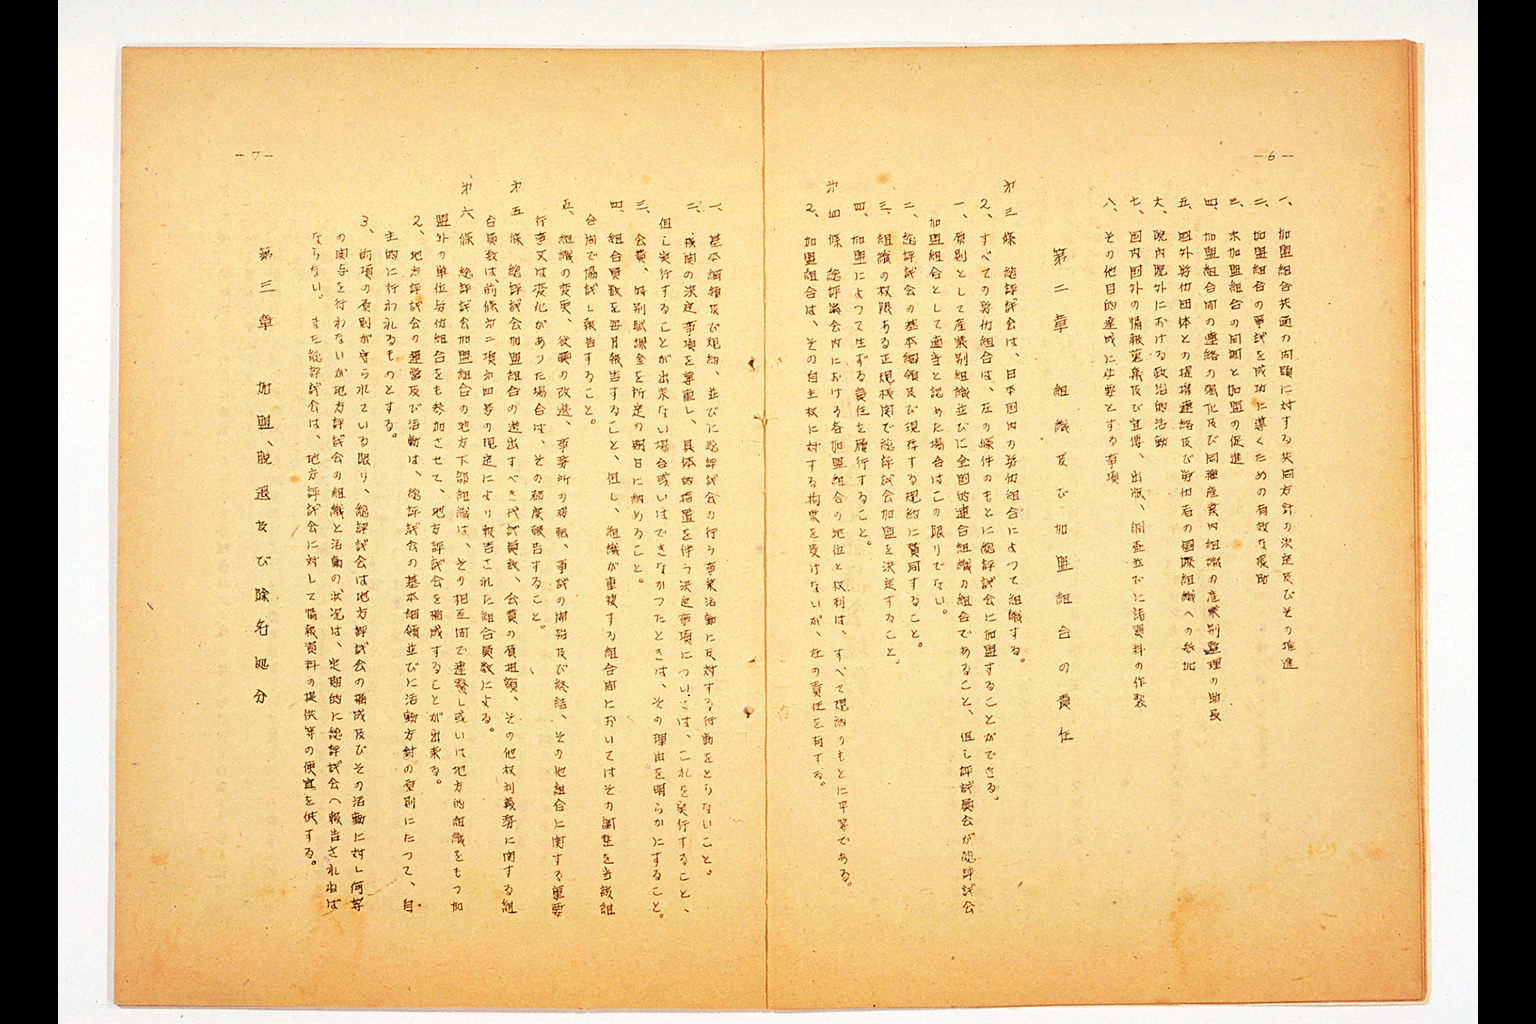 -6-
一、加盟組合共通の問題に対する共同方針の決定及びその推進
二、加盟組合の爭議を成功に導くための有效な援助
三、未加盟組合の同調と加盟の促進
四、加盟組合間の連絡の强化及び同種産業内組織の産業別整理の助長
五、國外労仂団体との提携連絡及び労仂者の國際組織への参加
六、院内院外における政治的活動
七、国内国外の情報蒐集及び宣傳、出版、調査並びに諸資料の作製
八、その他目的達成に必要とする事項
第二章 組織及び加盟組合の責任
才三條 総評議会は、日本国内の労仂組合によつて組織する。
2、すべての労仂組合は、左の條件のもとに総評議会に加盟することができる。
一、原則として産業別組織並びに全国的連合組織の組合であること、但し評議員会が総評議会
加盟組合として適当と認めた場合はこの限りでない。
二、総評議会の基本綱領及び現存する規約に賛同すること。
三、組織の权限ある正規機関で総評議会加盟を決定すること。
四、加盟によつて生ずる責任を履行すること。
才四條 総評議会内における各加盟組合の地位と权利は、すべて規約のもとに平等である。
2、加盟組合は、その自主权に対する拘束を受けないが、左の責任を有する。
一、基本綱領及び規約、並びに総評議会の行う事業活動に反対する行動をとらないこと。
二、機関の決定事項を尊重し、具体的指置を伴う決定事項については、これを実行すること、
但し実行することが出来ない場合或いはできなかつたときは、その理由を明らかにすること。
三、会費、特別賦課金を所定の期日に納めること。
四、組合員数を毎月報告すること、但し、組織が重複する組合間においてはその調整を当該組
合間で協議し報告すること。
五、組織の変更、役員の改選、事務所の移転、争議の開始及び終結、その他組合に関する重要
行事又は変化があつた場合は、その都度報告すること。
才五條 総評議会加盟組合の選出すべき代議員数、会費の負担額、その他权利義務に関する組
合員数は前條才二項才四号の規定により報告された組合員数による。
才六條 総評議会加盟組合の地方下部組織は、その相互間で連繋し或いは地方的組織をもつ加
盟外の単位労仂組合をも参加させて、地方評議会を構成することが出来る。
2、地方評議会の運営及び活動は、総評議会の基本綱領並びに活動方針の原則にたつて、自
主的に行われるものとする。
3、前項の原則が守られている限り、総評議会は地方評議会の構成及びその活動に対し何等
の関与を行わないが地方評議会の組織と活動の状況は、定期的に総評議会へ報告されねば
ならない。また総評議会は、地方評議会に対して情報資料の提供等の便宜を供する。
第三章 加盟、脱退及び除名処分
-7-